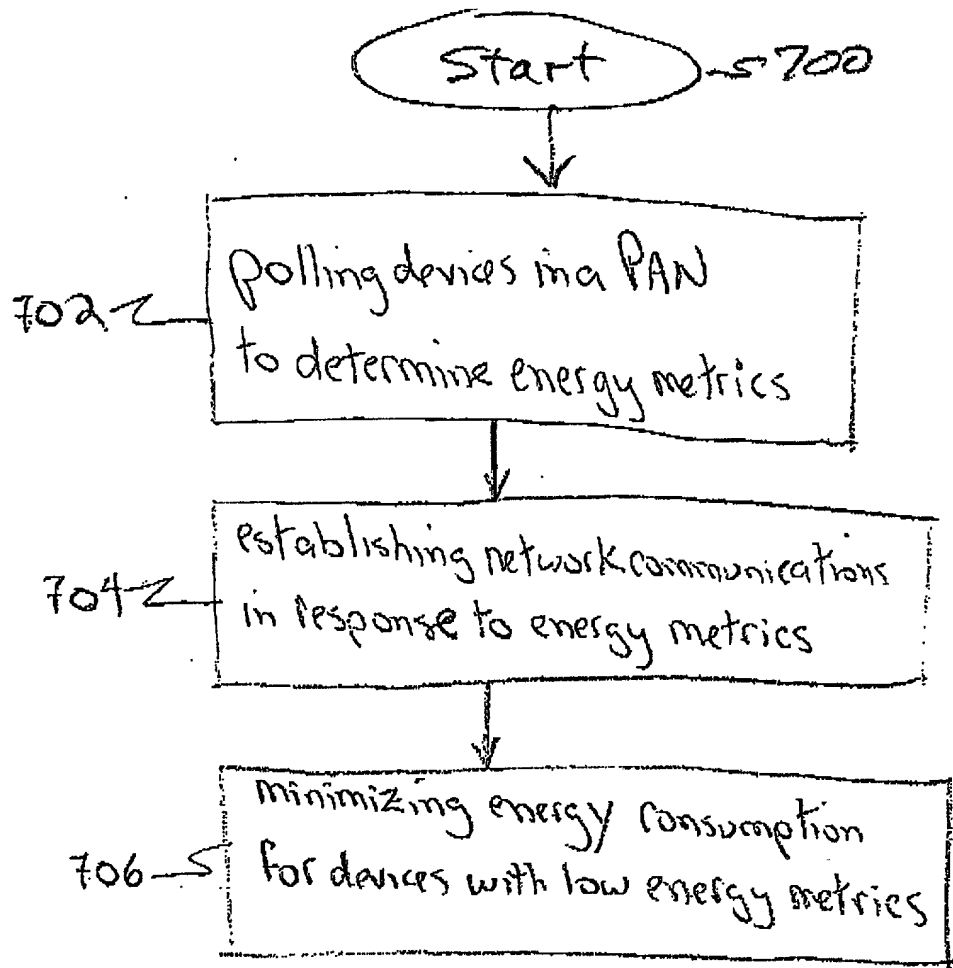 Start 700
polling devices in a PAN
702
to determine energy metrics
establishing network communications
704
in response to energy metrics
minimizing energy consumption
706
for devices with low energy metrics